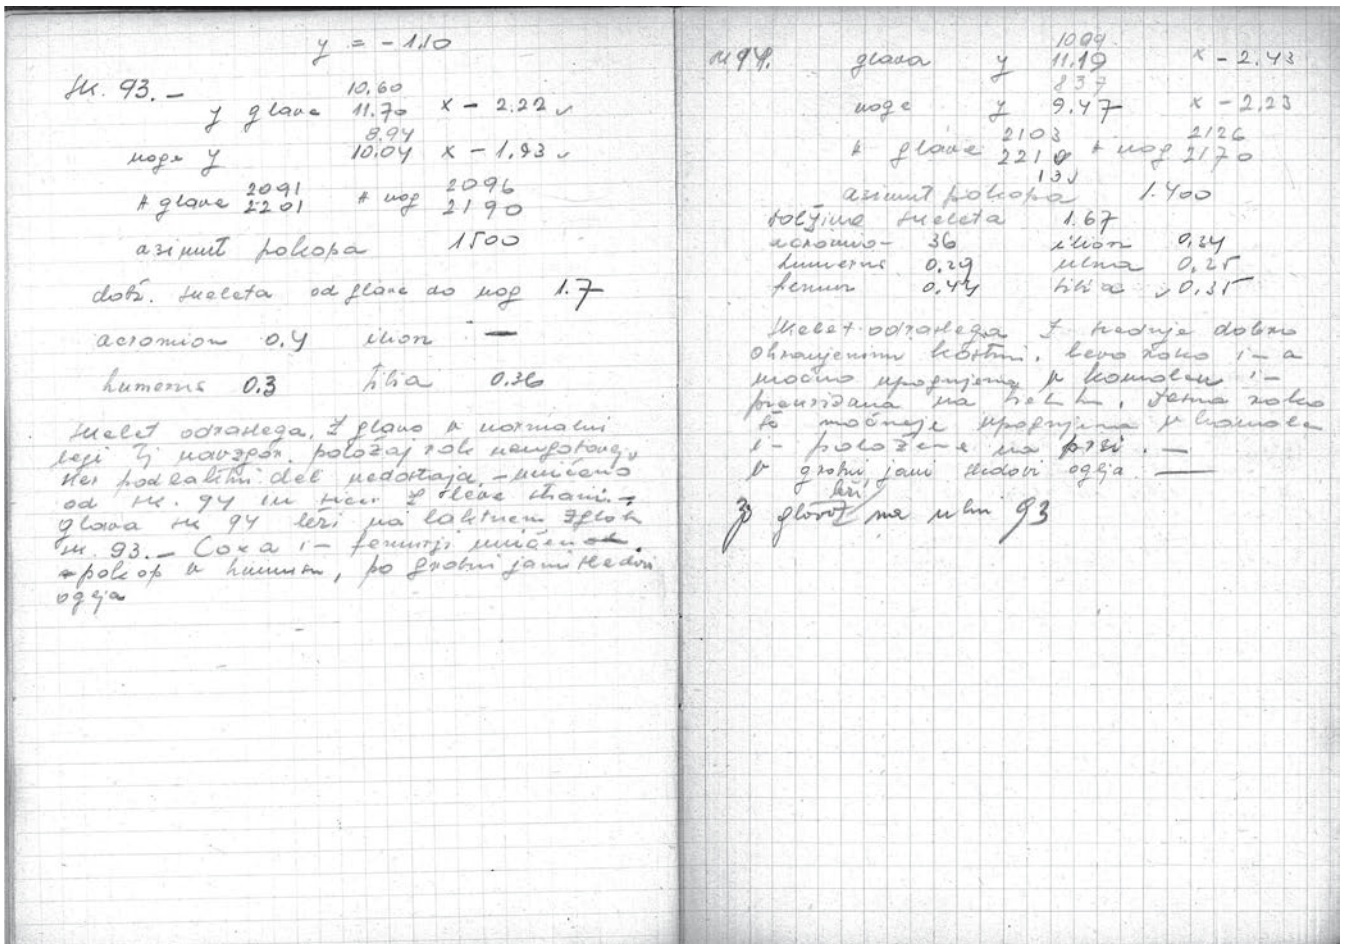 y = - 1.10
sk. 93. –
10.60
y glave 11.70 x – 2.22 ✓
8.94
noge y 10.04 x – 1.93 ✓
2091 2096
glave 2201 nog 2190
azimut pokopa 1500
dolž. skeleta od glave do nog 1.7
acromion 0.4 ilion —
humerus 0.3 tibia 0.36
skelet odraslega, z glavo v normalni
legi tj navzgor. položaj rok neugotovlj.
ker podlaktni del nedostaja, – uničeno
od sk. 94 in sicer z leve strani. –
glava sk 94 leži na laktnem zglob
sk. 93. – Coxa i – femurji uničen
pokop v humusu, po grobni jami sledovi
oglja
1099
sk 94. glava y 11.19 x – 2.43
837
noge y 9.47 x – 2.23
2103 2126
glave 2210 nog 2170
13
azimut pokopa 1.400
dolžina skeleta 1.67
acromio- 36 ilion 0,24
humerus 0,29 ulna 0,25
femur 0,44 tibia ✓ 0,35
skelet odraslega z srednje dobro
ohranjenimi kostmi. leva roka i – a
močno upognjena v komolcu i –
na desna roka
močneje upognjena v komolcu
i – položene na prsi. –
v grobni jami sledovi oglja —
leži
glavo na ulni 93